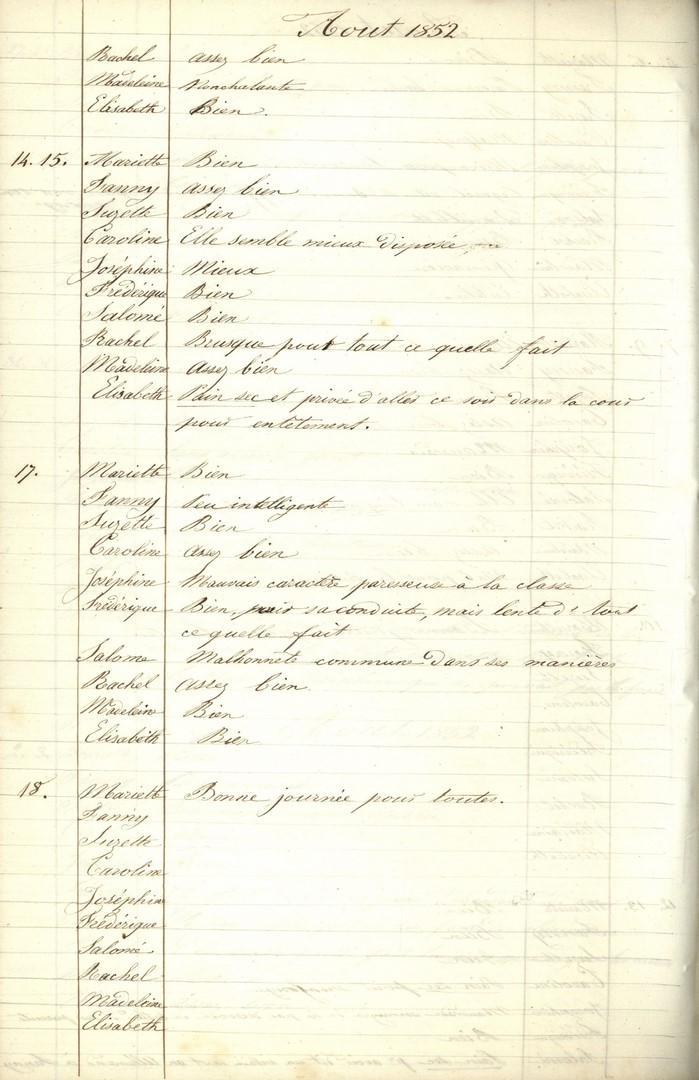 Aout 1852
Rachel assez bien
Madeleine Nonchalante
Elisabeth Bien.
14. 15. Mariette Bien
Fanny assez bien
Suzette Bien
Caroline Elle semble mieux disposée
Joséphine Mieux
Frédérique Bien
Salomé Bien
Rachel Brusque pour tout ce quelle fait
Madeleine assez bien
Elisabeth Pain sec et privée d'aller ce soir dans la cour
pour entêtement.
17. Mariette Bien
Fanny Peu intelligente
Suzette Bien
Caroline assez bien
Joséphine Mauvais caractère paresseuse à la classe
Frédérique Bien, pour sa conduite, mais lente ds tout
ce quelle fait
Salome Malhonnête commune dans ses manières
Rachel assez bien.
Madeleine Bien
Elisabeth Bien
18. Mariette Bonne journée pour toutes.
Fanny
Suzette
Caroline
Joséphine
Frédérique
Salomé
Rachel
Madeleine
Elisabeth